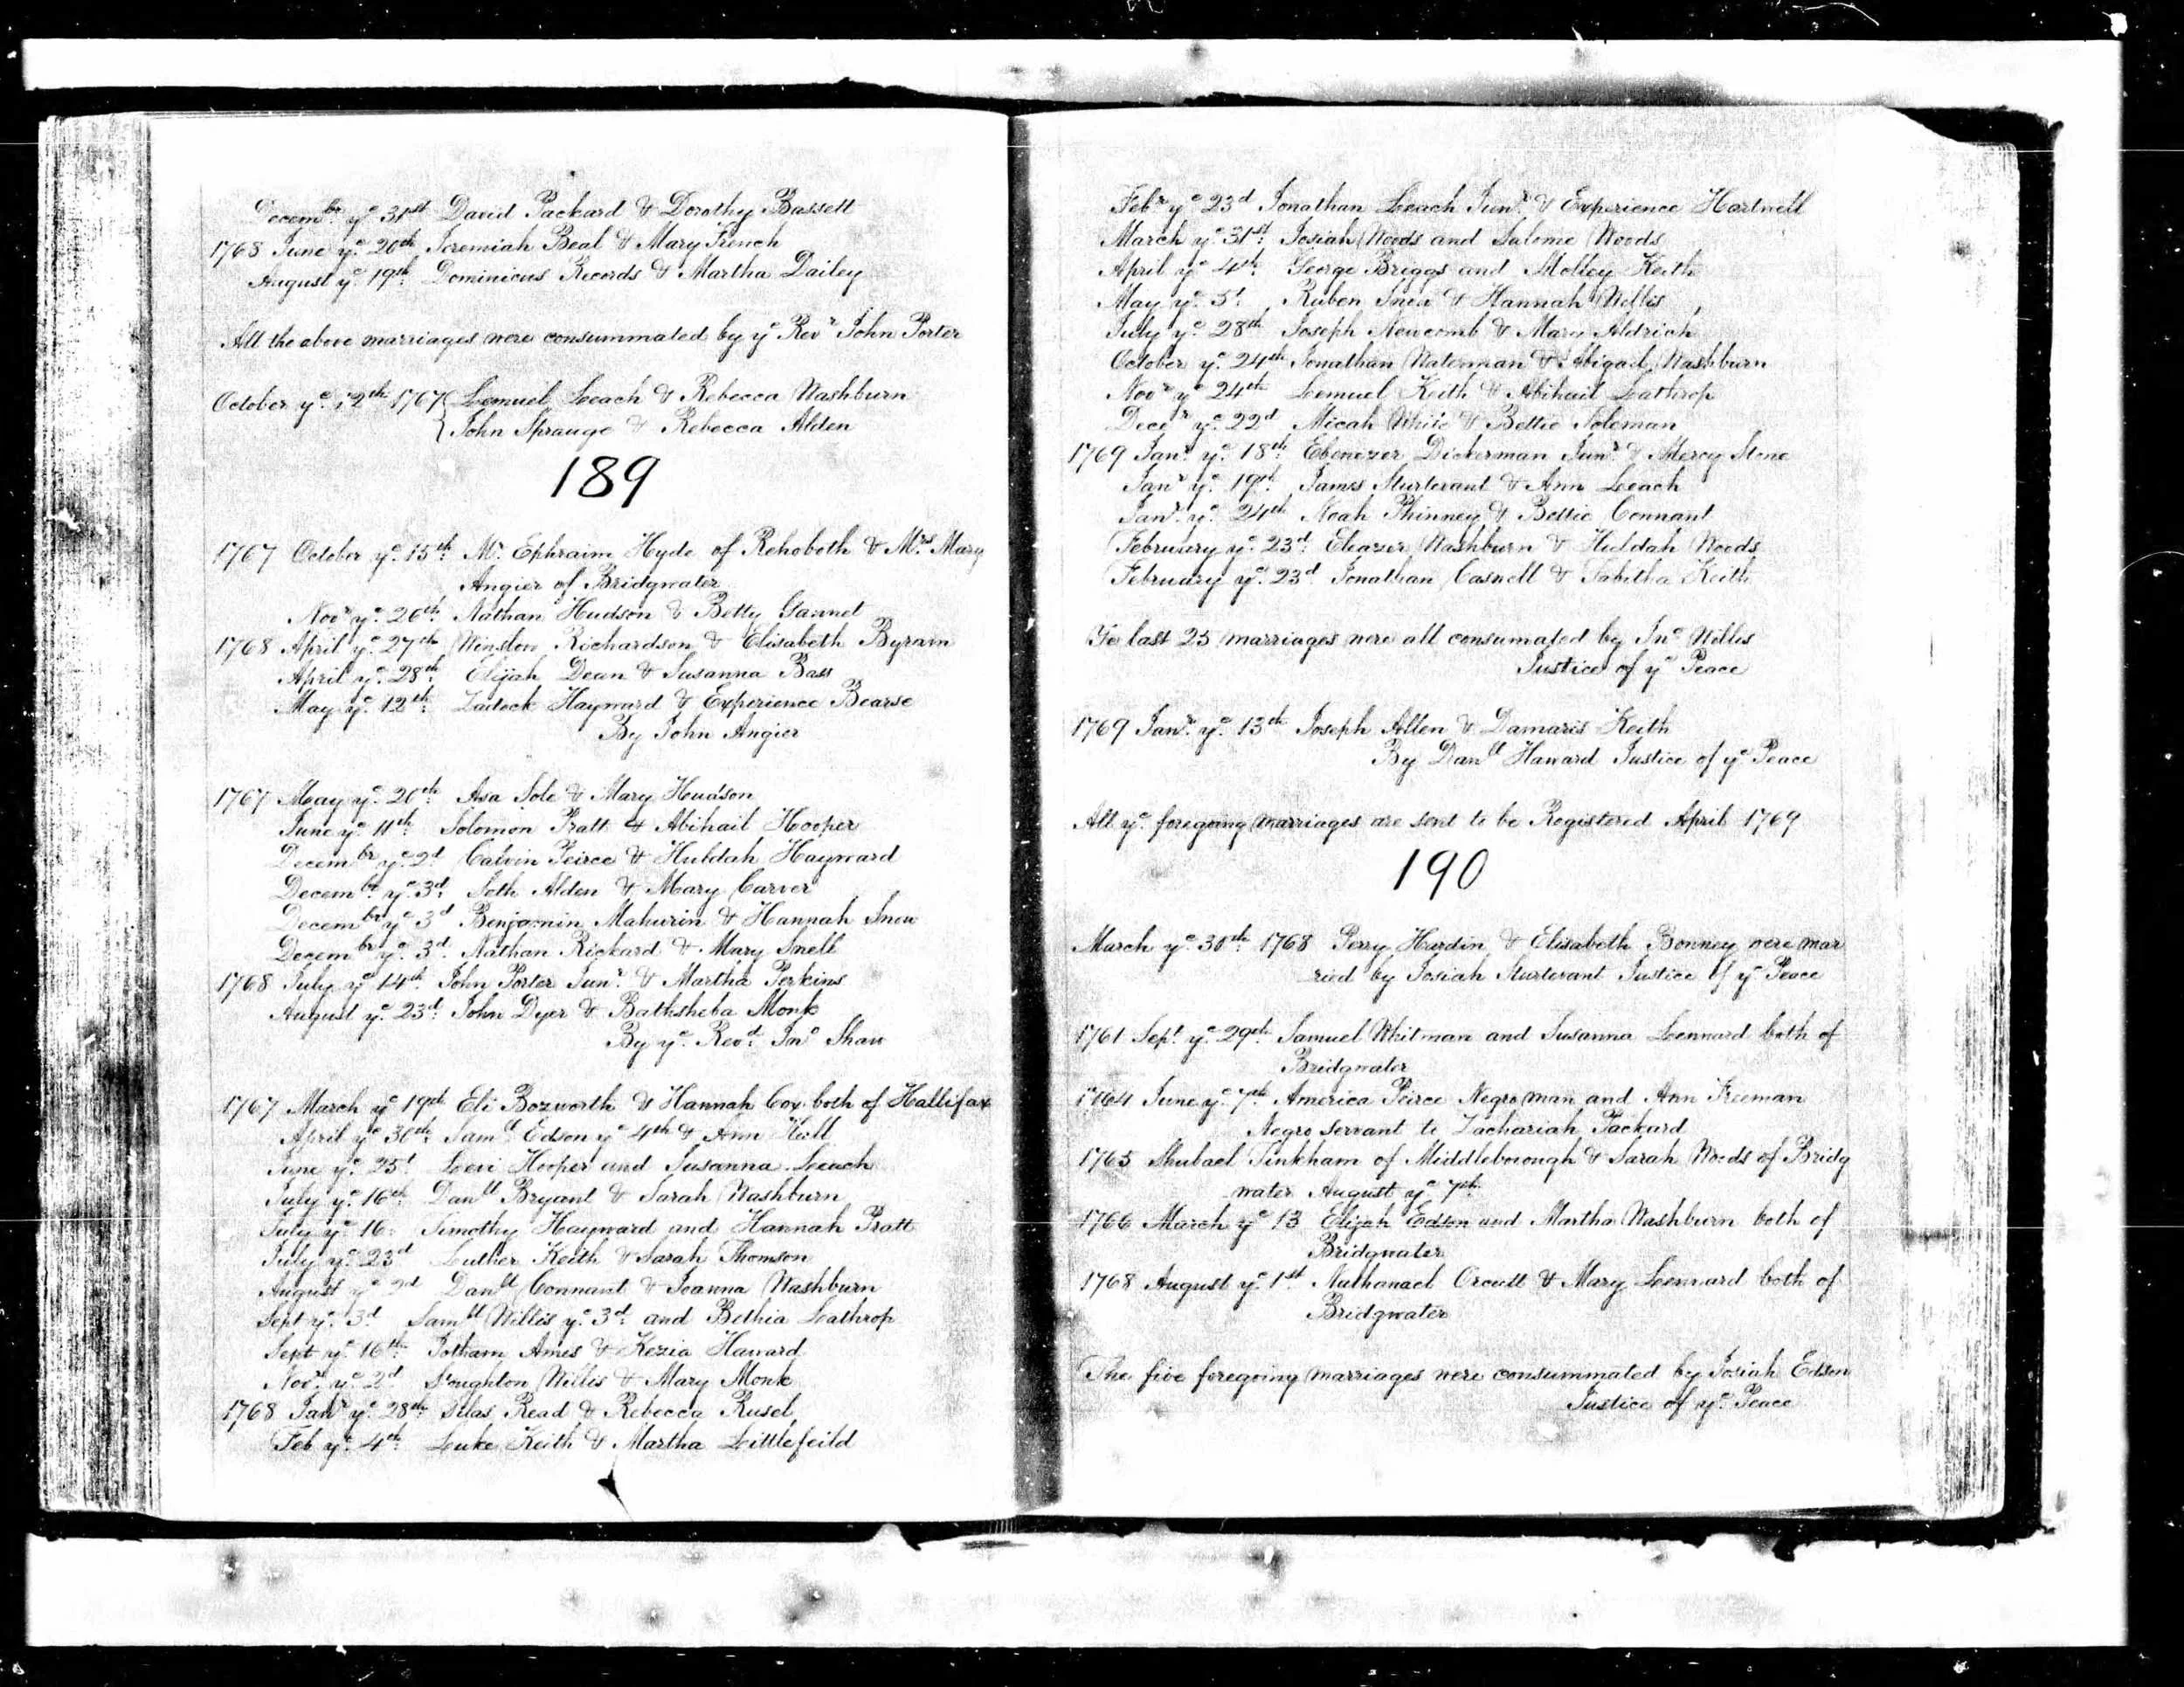 Decembr ye 31st David Packard & Dorothy Bassett
1768 June ye 20th Jeremiah Beal & Mary French
August ye 19th Dominicus Records & Martha Dailey
All the above marriages were consummated by ye Revr John Porter
October ye 12th 1767 { Lemuel Leach & Rebecca Washburn
{ John Sprauge & Rebecca Alden
189
1767 October ye 15th Mr Ephraim Hyde of Rehoboth & Mrs Mary
Angier of Bridgwater
Novr ye 26th Nathan Hudson & Betty Gannet
1768 April ye 27th Winslow Richardson & Elisabeth Byram
April ye 28th Elijah Dean & Susanna Bass
May ye 12th Zadock Hayward & Experience Bearse
By John Angier
1767 May ye 20th Asa Sole & Mary Hudson
June ye 11th Solomon Pratt & Abihail Hooper
Decembr ye 2d Calvin Peirce & Huldah Hayward
Decembr ye 3d Seth Alden & Mary Carver
Decembr ye 3d Benjamin Mahurin & Hannah Snow
Decembr ye 3d Nathan Rickard & Mary Snell
1768 July ye 14th John Porter Junr & Martha Perkins
August ye 23d John Dyer & Bathsheba Monk
By ye Revd Jno Shaw
1767 March ye 19th Eli Bozworth & Hannah Cox both of Hallifax
April ye 30th Samll Edson ye 4th & Ann Hall
June ye 25t Levi Hooper and Susanna Leach
July ye 16th Danll Bryant & Sarah Washburn
July ye 16 Timothy Hayward and Hannah Pratt
July ye 23d Luther Keith & Sarah Thomson
August ye 2d Danll Connant & Joanna Washburn
Sept ye 3d Samll Willis ye 3d and Bethia Lathrop
Sept ye 16th Jotham Ames & Kezia Haward
Novr ye 2d Stoughton Willis & Mary Monk
1768 Janr ye 28th Silas Read & Rebecca Rusel
Feb ye 4th Luke Keith & Martha Littlefeild
Febr ye 23d Jonathan Leach Junr & Experience Hartwell
March ye 31st Josiah Woods and Salome Woods
April ye 4th George Briggs and Molley Keith
May ye 5t Ruben Snow & Hannah Willis
July ye 28th Joseph Newcomb & Mary Aldrich
October ye 24th Jonathan Waterman & Abigail Washburn
Novr ye 24th Lemuel Keith & Abihail Lathrop
Decer ye 22d Micah White & Bettie Soleman
1769 Janr ye 18th Ebenezer Dickerman Junr & Mercy Stone
Janr ye 19th James Sturtevant & Ann Leach
Janr ye 24th Noah Phinney & Bettie Connant
February ye 23d Eleazer Washburn & Huldah Woods
February ye 23d Jonathan Caswell & Tabitha Keith
Ye last 25 marriages were all consumated by Jno Willis
Justice of ye Peace
1769 Janr ye 13th Joseph Allen & Damaris Keith
By Danll Haward Justice of ye Peace
All ye foregoing marriages are sent to be Registered April 1769
190
March ye 30th 1768 Perry Hardin & Elisabeth Bonney were mar
ried by Josiah Sturtevant Justice of ye Peace
1761 Sept ye 29th Samuel Whitman and Susanna Lennard both of
Bridgwater
1764 June ye 7th America Peirce Negro man and Ann Freeman
Negro Servant to Zachariah Packard
1765 Shubael Tinkham of Middleborough & Sarah Woods of Bridg
water August ye 7th
1766 March ye 13 Elijah Edson and Martha Washburn both of
Bridgwater
1768 August ye 1st Nathanael Orcutt & Mary Lennard both of
Bridgwater
The five foregoing marriages were consummated by Josiah Edson
Justice of ye Peace